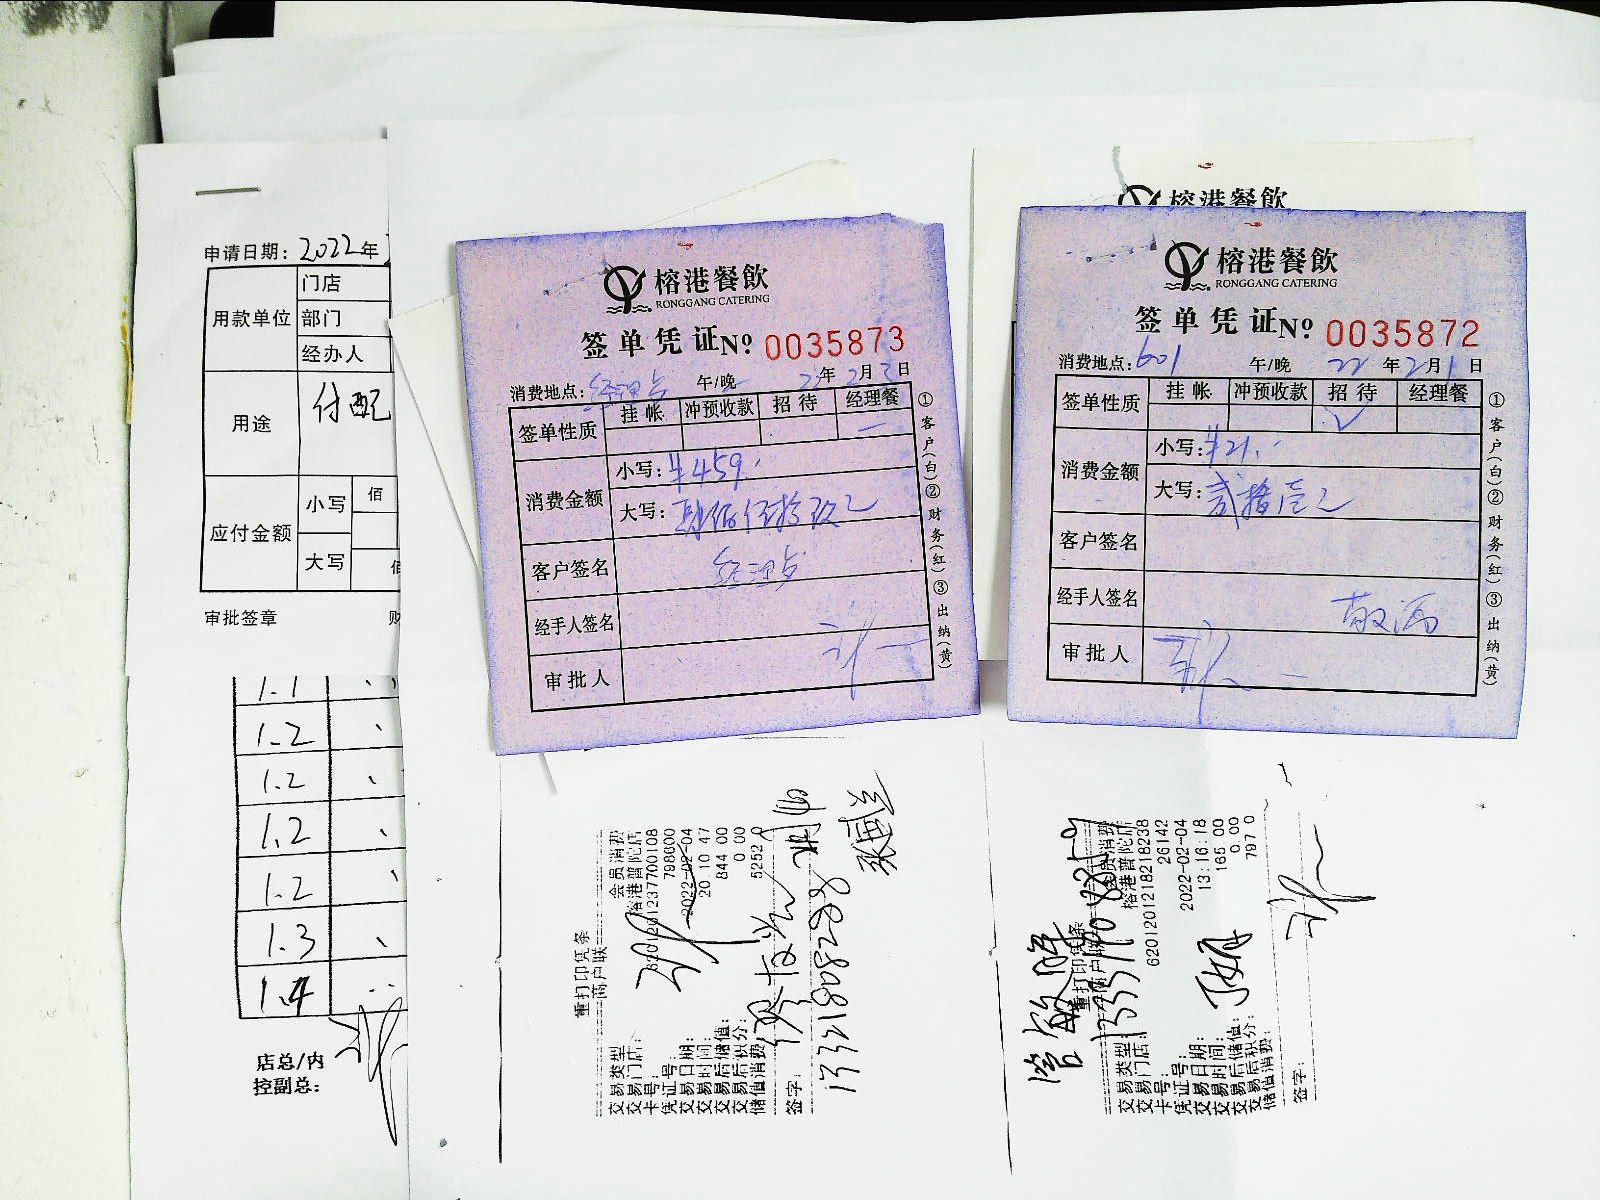 申请日期：2022年
用款单位
门店
部门
经办人
用途
付配
应付金额
小写
佰
大写
审批签章
财
1.1
1.2
1.2
1.2
1.2
1.3
1.4
店总/内
控副总：
榕港餐飲
RONGGANG CATERING
签单凭证№ 0035873
消费地点： 午/晚 22年2月2日
签单性质 挂帐 冲预收款 招待 经理餐
消费金额
小写：¥459.
大写：肆佰伍拾玖元
客户签名
经手人签名
审批人
①客户(白)②财务(红)③出纳(黄)
榕港餐飲
榕港餐飲
RONGGANG CATERING
签单凭证№ 0035872
消费地点：601 午/晚 22年2月1日
签单性质 挂帐 冲预收款 招待 经理餐
消费金额
小写：¥21.
大写：贰拾壹元
客户签名
经手人签名
审批人
①客户(白)②财务(红)③出纳(黄)
重打印凭条
商户联
交易类型 会员消费
交易门店： 榕港普陀店
卡号： 6201201237700108
凭证号： 798600
交易日期： 2022-02-04
交易时间： 20 10 47
交易后储值： 844 00
交易后积分： 0 00
储值消费： 5252 0
签字：
13321808228
重打印凭条
商户联
交易类型 会员消费
交易门店： 榕港普陀店
卡号： 6201201218218238
凭证号： 26142
交易日期： 2022-02-04
交易时间： 13:16:18
交易后储值： 165 00
交易后积分： 0.00
储值消费： 797 0
签字：